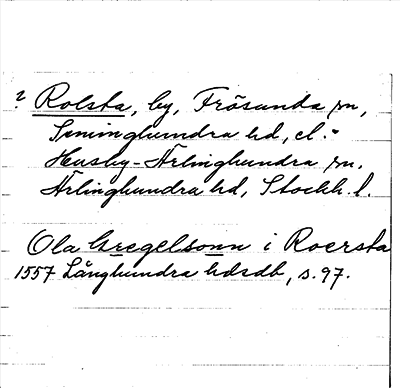 ? Rolsta, by, Frösunda sn,
Seminghundra hd, el.
Husby-Ärlinghundra sn.
Ärlinghundra hd, Stockh. l.
Ola Gregelsonn i Roersta
1557 Långhundra hdsdb, s. 97.